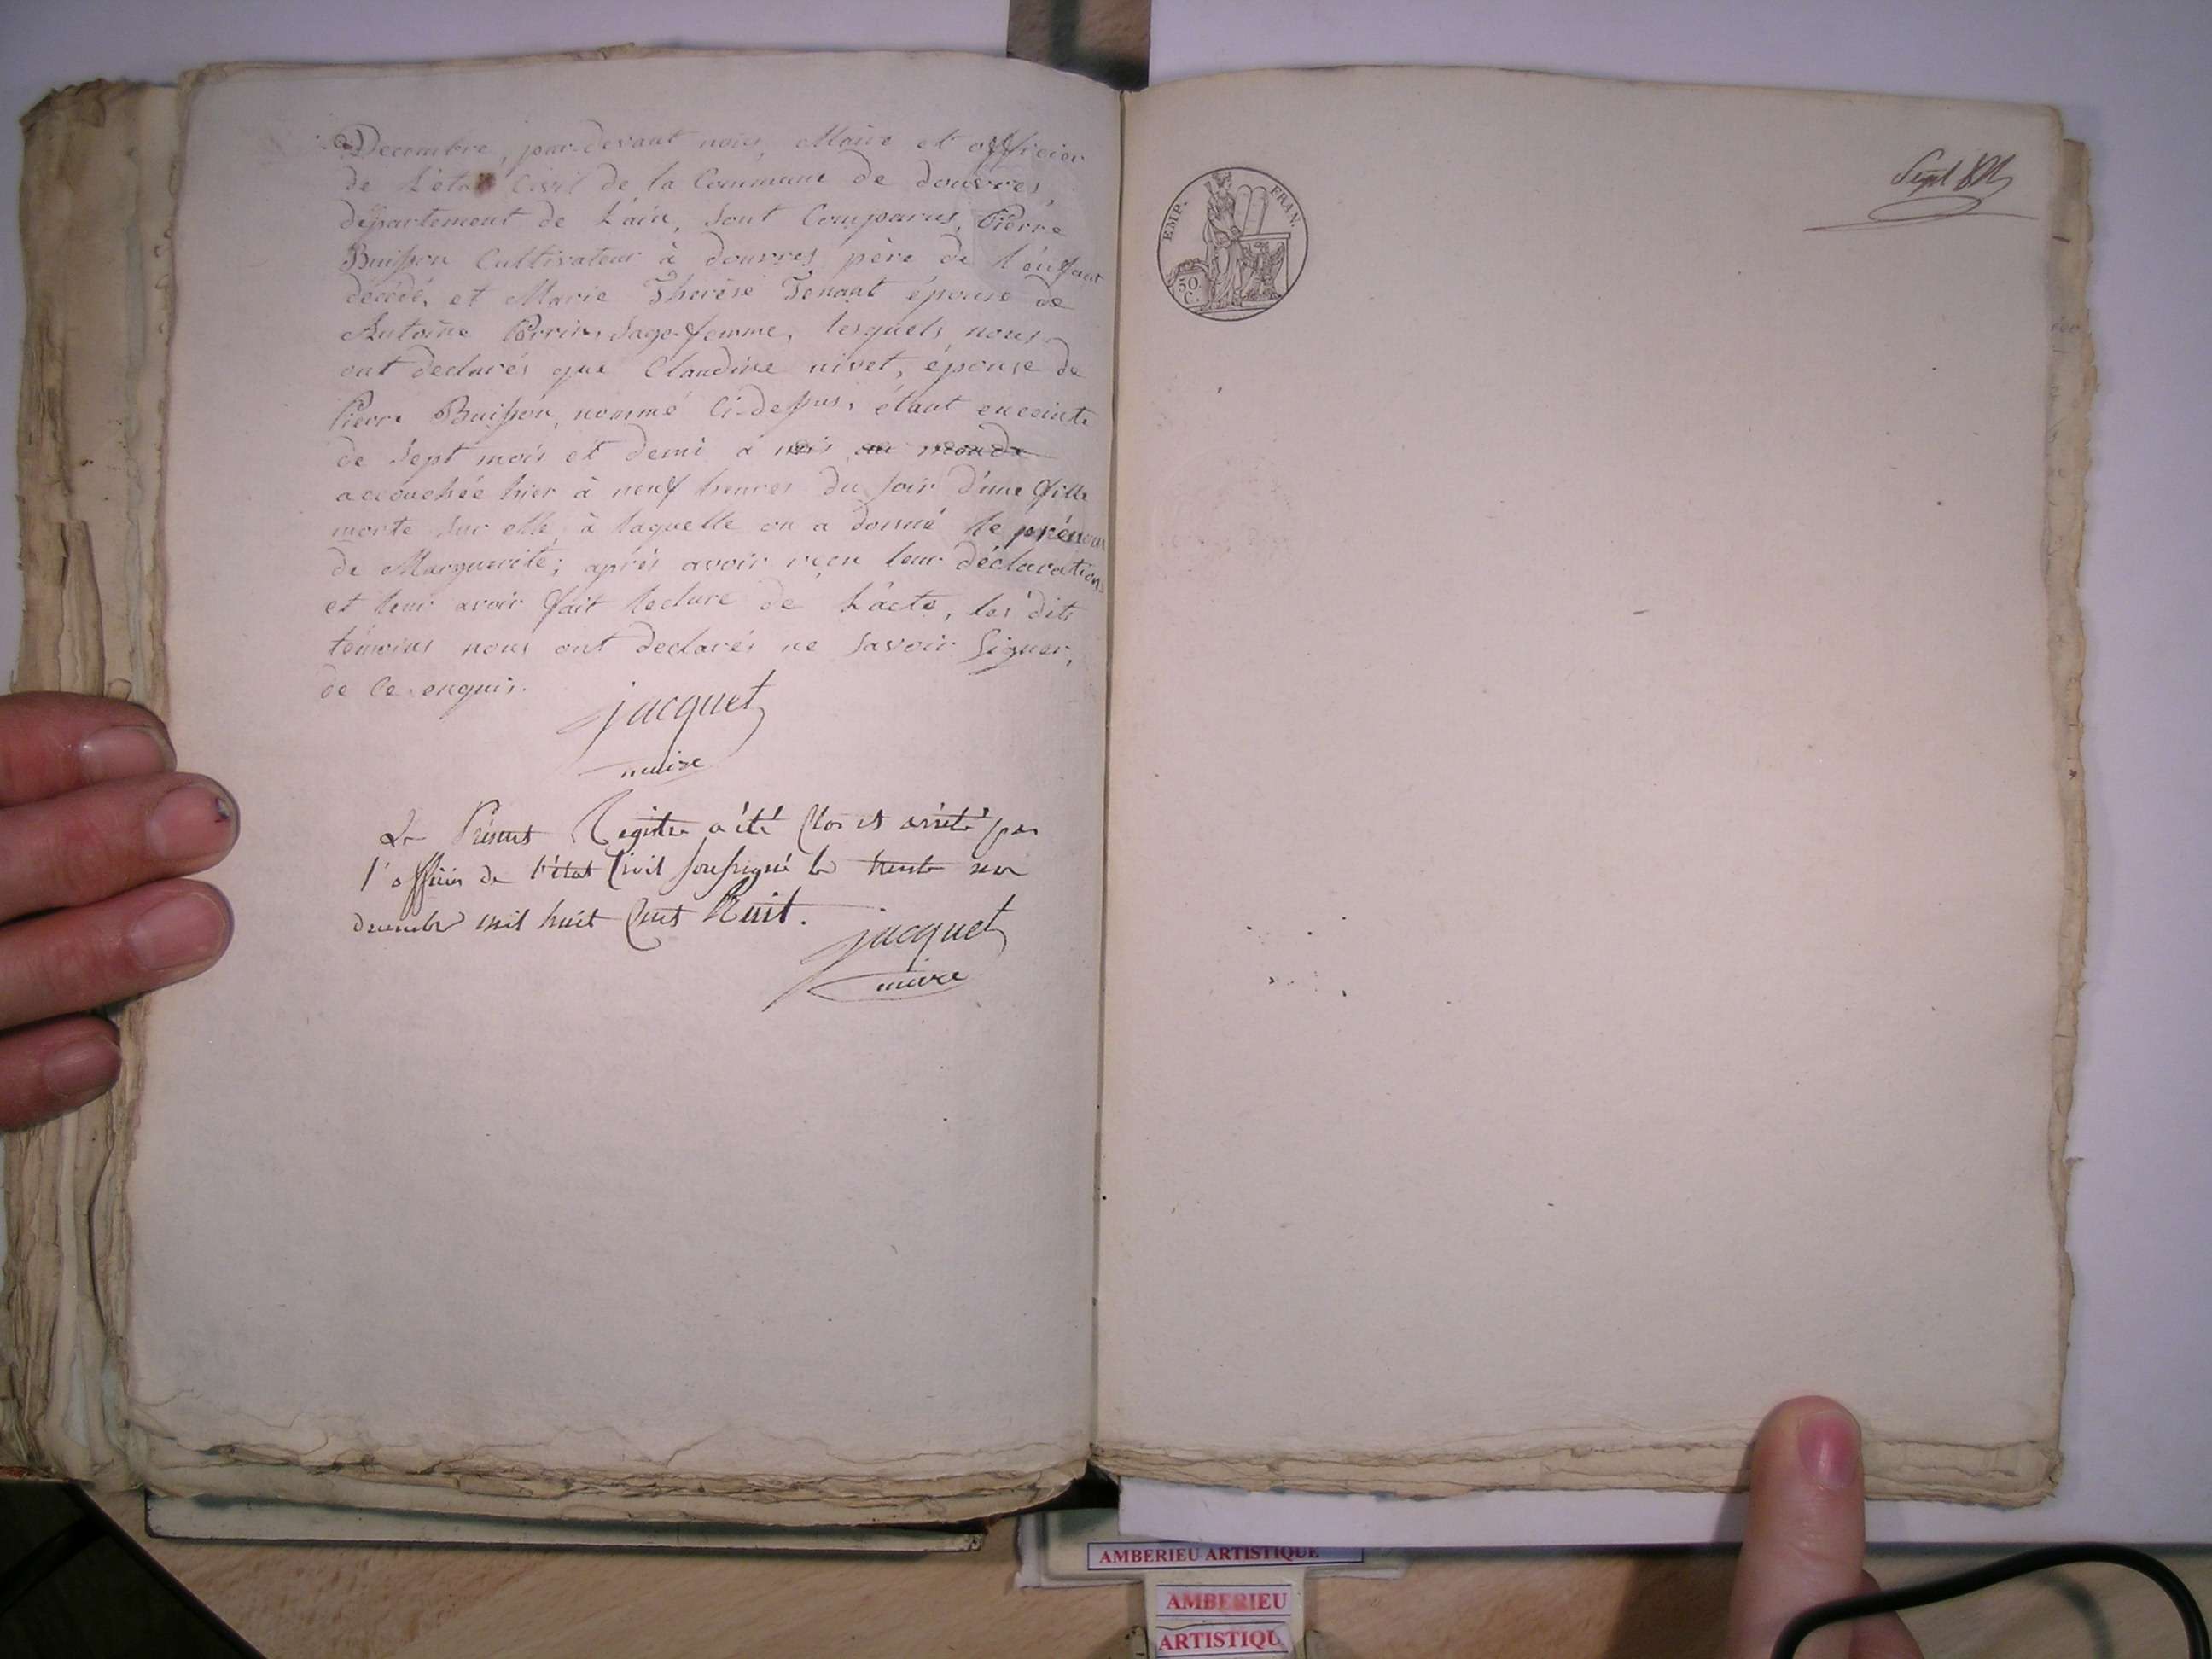 Decembre, par-devant nous, Maire et officier
de L'état Civil de la Commune de douvres,
département de L'ain, sont Comparus, Pierre
Buisson Cultivateur à douvres père de l'enfant
décédé, et Marie Thérèse Tenant épouse de
Antoine Perrin, Sage-femme, lesquels nous
ont declarés que Claudine nivet, épouse de
Pierre Buisson, nommé Ci-dessus, étant enceinte
de Sept mois et demi a mis au monde
accouchée hier à neuf heures du soir d'une fille
morte sur elle, à laquelle on a donné le prénom
de Marguerite; après avoir reçu leur déclaration
et leur avoir fait lecture de L'acte, les dits
témoins nous ont declarés ne savoir Signer,
de Ce enquis.
jacquet
maire
Le Présent Registre a été Clos et arrêté par
l'officier de l'état Civil soussigné le trente un
decembre mil huit Cent Huit.
jacquet
maire
EMP. FRAN.
50
C.
Sept
AMBERIEU ARTISTIQUE
AMBERIEU
ARTISTIQU